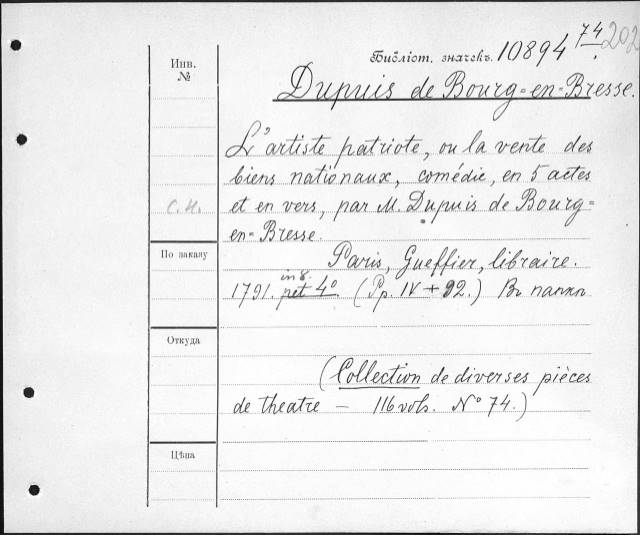 Библіот. значекъ. 10894 74. 202
Инв.
№
Dupuis de Bourg-en-Bresse.
L'artiste patriote, ou la vente des
biens nationaux, comédie, en 5 actes
С.Н. et en vers, par M. Dupuis de Bourg-
en-Bresse.
По заказу
Paris, Gueffier, libraire.
in 8.
1791. pet 4° (Pp. IV + 92.) Въ папкѣ
Откуда
(Collection de diverses pièces
de theatre — 116 vols. N° 74.)
Цѣна